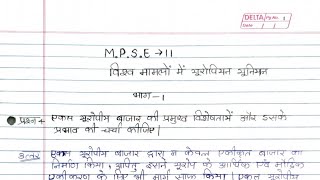 DELTA
M.P.S.E → 11
विश्व मामलों में यूरोपियन यूनियन
भाग -1
प्रश्न 1 एकल यूरोपीय बाजार की प्रमुख विशेषताओं और इसके
प्रभाव की चर्चा कीजिए।
उत्तर एकल यूरोपीय बाजार द्वारा न केवल एकीकृत बाजार का
निर्माण किया, अपितु इसने यूरोप के आर्थिक एवं मौद्रिक
एकीकरण के लिए भी मार्ग साफ किया। एकल यूरोपीय